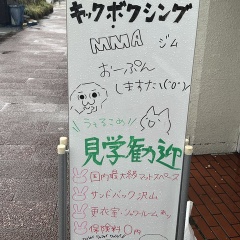 キックボクシング
・
MMA ジム
おーぷん
しますた!(°o°)
うぇるこめ!!
見学勧迎
国内最大級マットスペース
サンドバック沢山
更衣室・シャワールーム有り
保険料0円